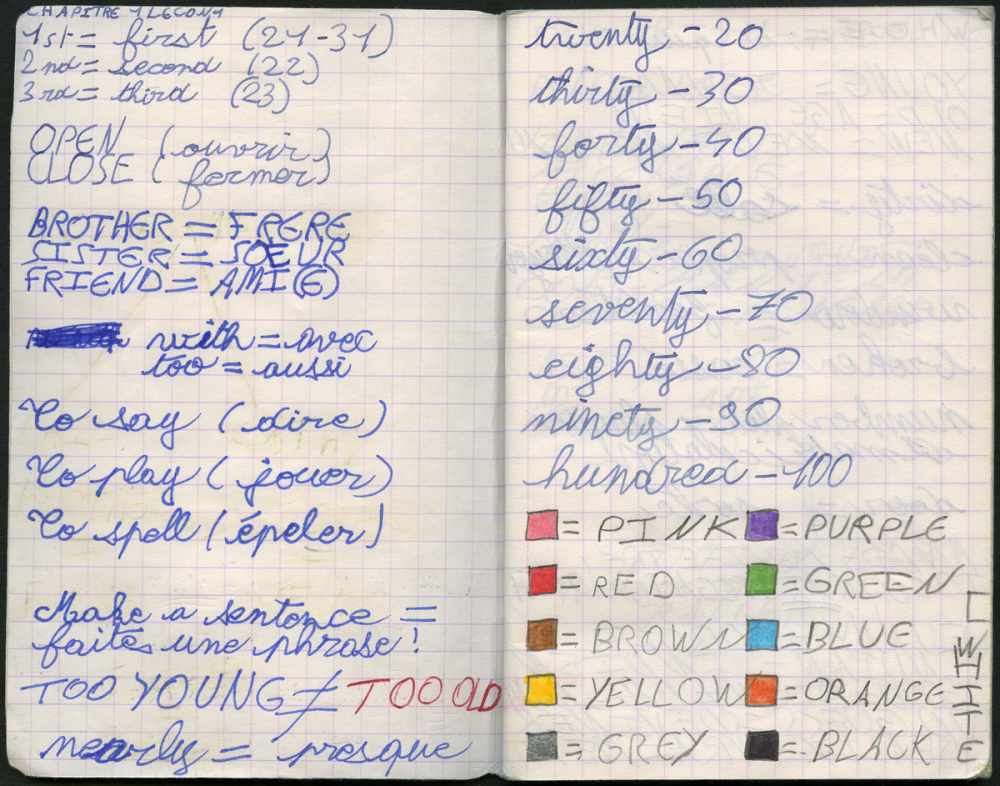 CHAPITRE 1 LECON 1
1st = first (21-31)
2nd = second (22)
3rd = third (23)
OPEN (ouvrir)
CLOSE (fermer)
BROTHER = FRERE
SISTER = SOEUR
FRIEND = AMI(E)
with = avec
too = aussi
To say (dire)
To play (jouer)
To spell (épeler)
Make a sentence =
faites une phrase!
TOO YOUNG ≠ TOO OLD
nearly = presque
twenty - 20
thirty - 30
forty - 40
fifty - 50
sixty - 60
seventy - 70
eighty - 80
ninety - 90
hundred - 100
= PINK = PURPLE
= RED = GREEN
= BROWN = BLUE
= YELLOW = ORANGE
= GREY = BLACK
WHITE